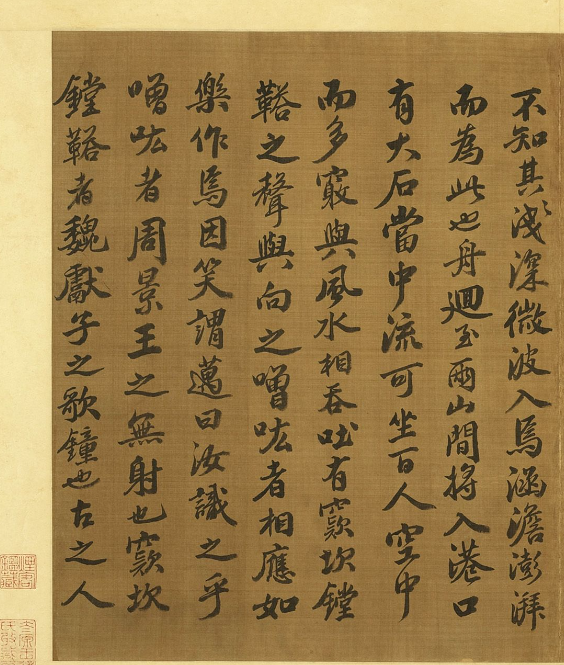 不知其淺深微波入焉涵澹澎湃
而為此也舟迴至兩山間將入港口
有大石當中流可坐百人空中
而多竅與風水相吞吐有窾坎鏜
鞳之聲與向之噌吰者相應如
樂作焉因笑謂邁曰汝識之乎
噌吰者周景王之無射也窾坎
鏜鞳者魏獻子之歌鐘也古之人